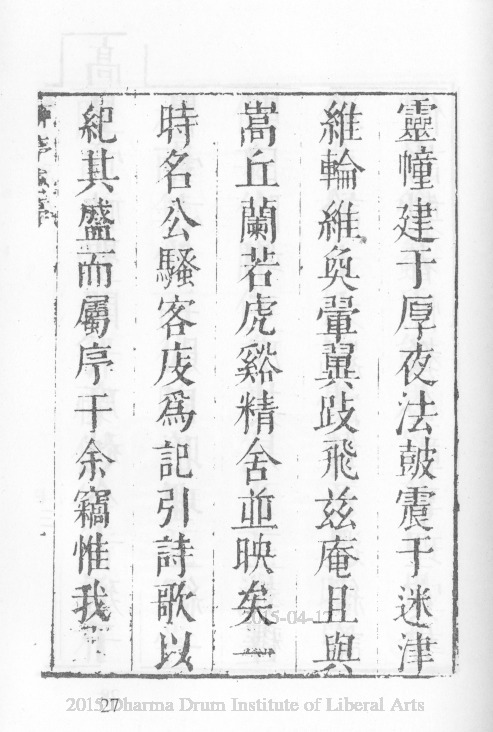 靈幢建于厚夜法皷震于迷津
維輪維奐翬翼跂飛兹庵且與
嵩丘蘭若虎谿精舍並映矣一
時名公騷客庋爲記引詩歌以
紀其盛而屬序于余竊惟我
2015-04-17
2015 Dharma Drum Institute of Liberal Arts
27